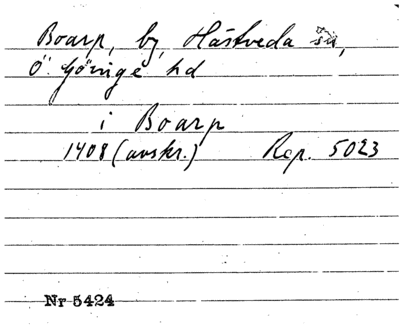 Boarp, by, Hästveda sn,
Ö Göinge hd
i Boarp
1408 (avskr.) Rep. 5023
Nr 5424